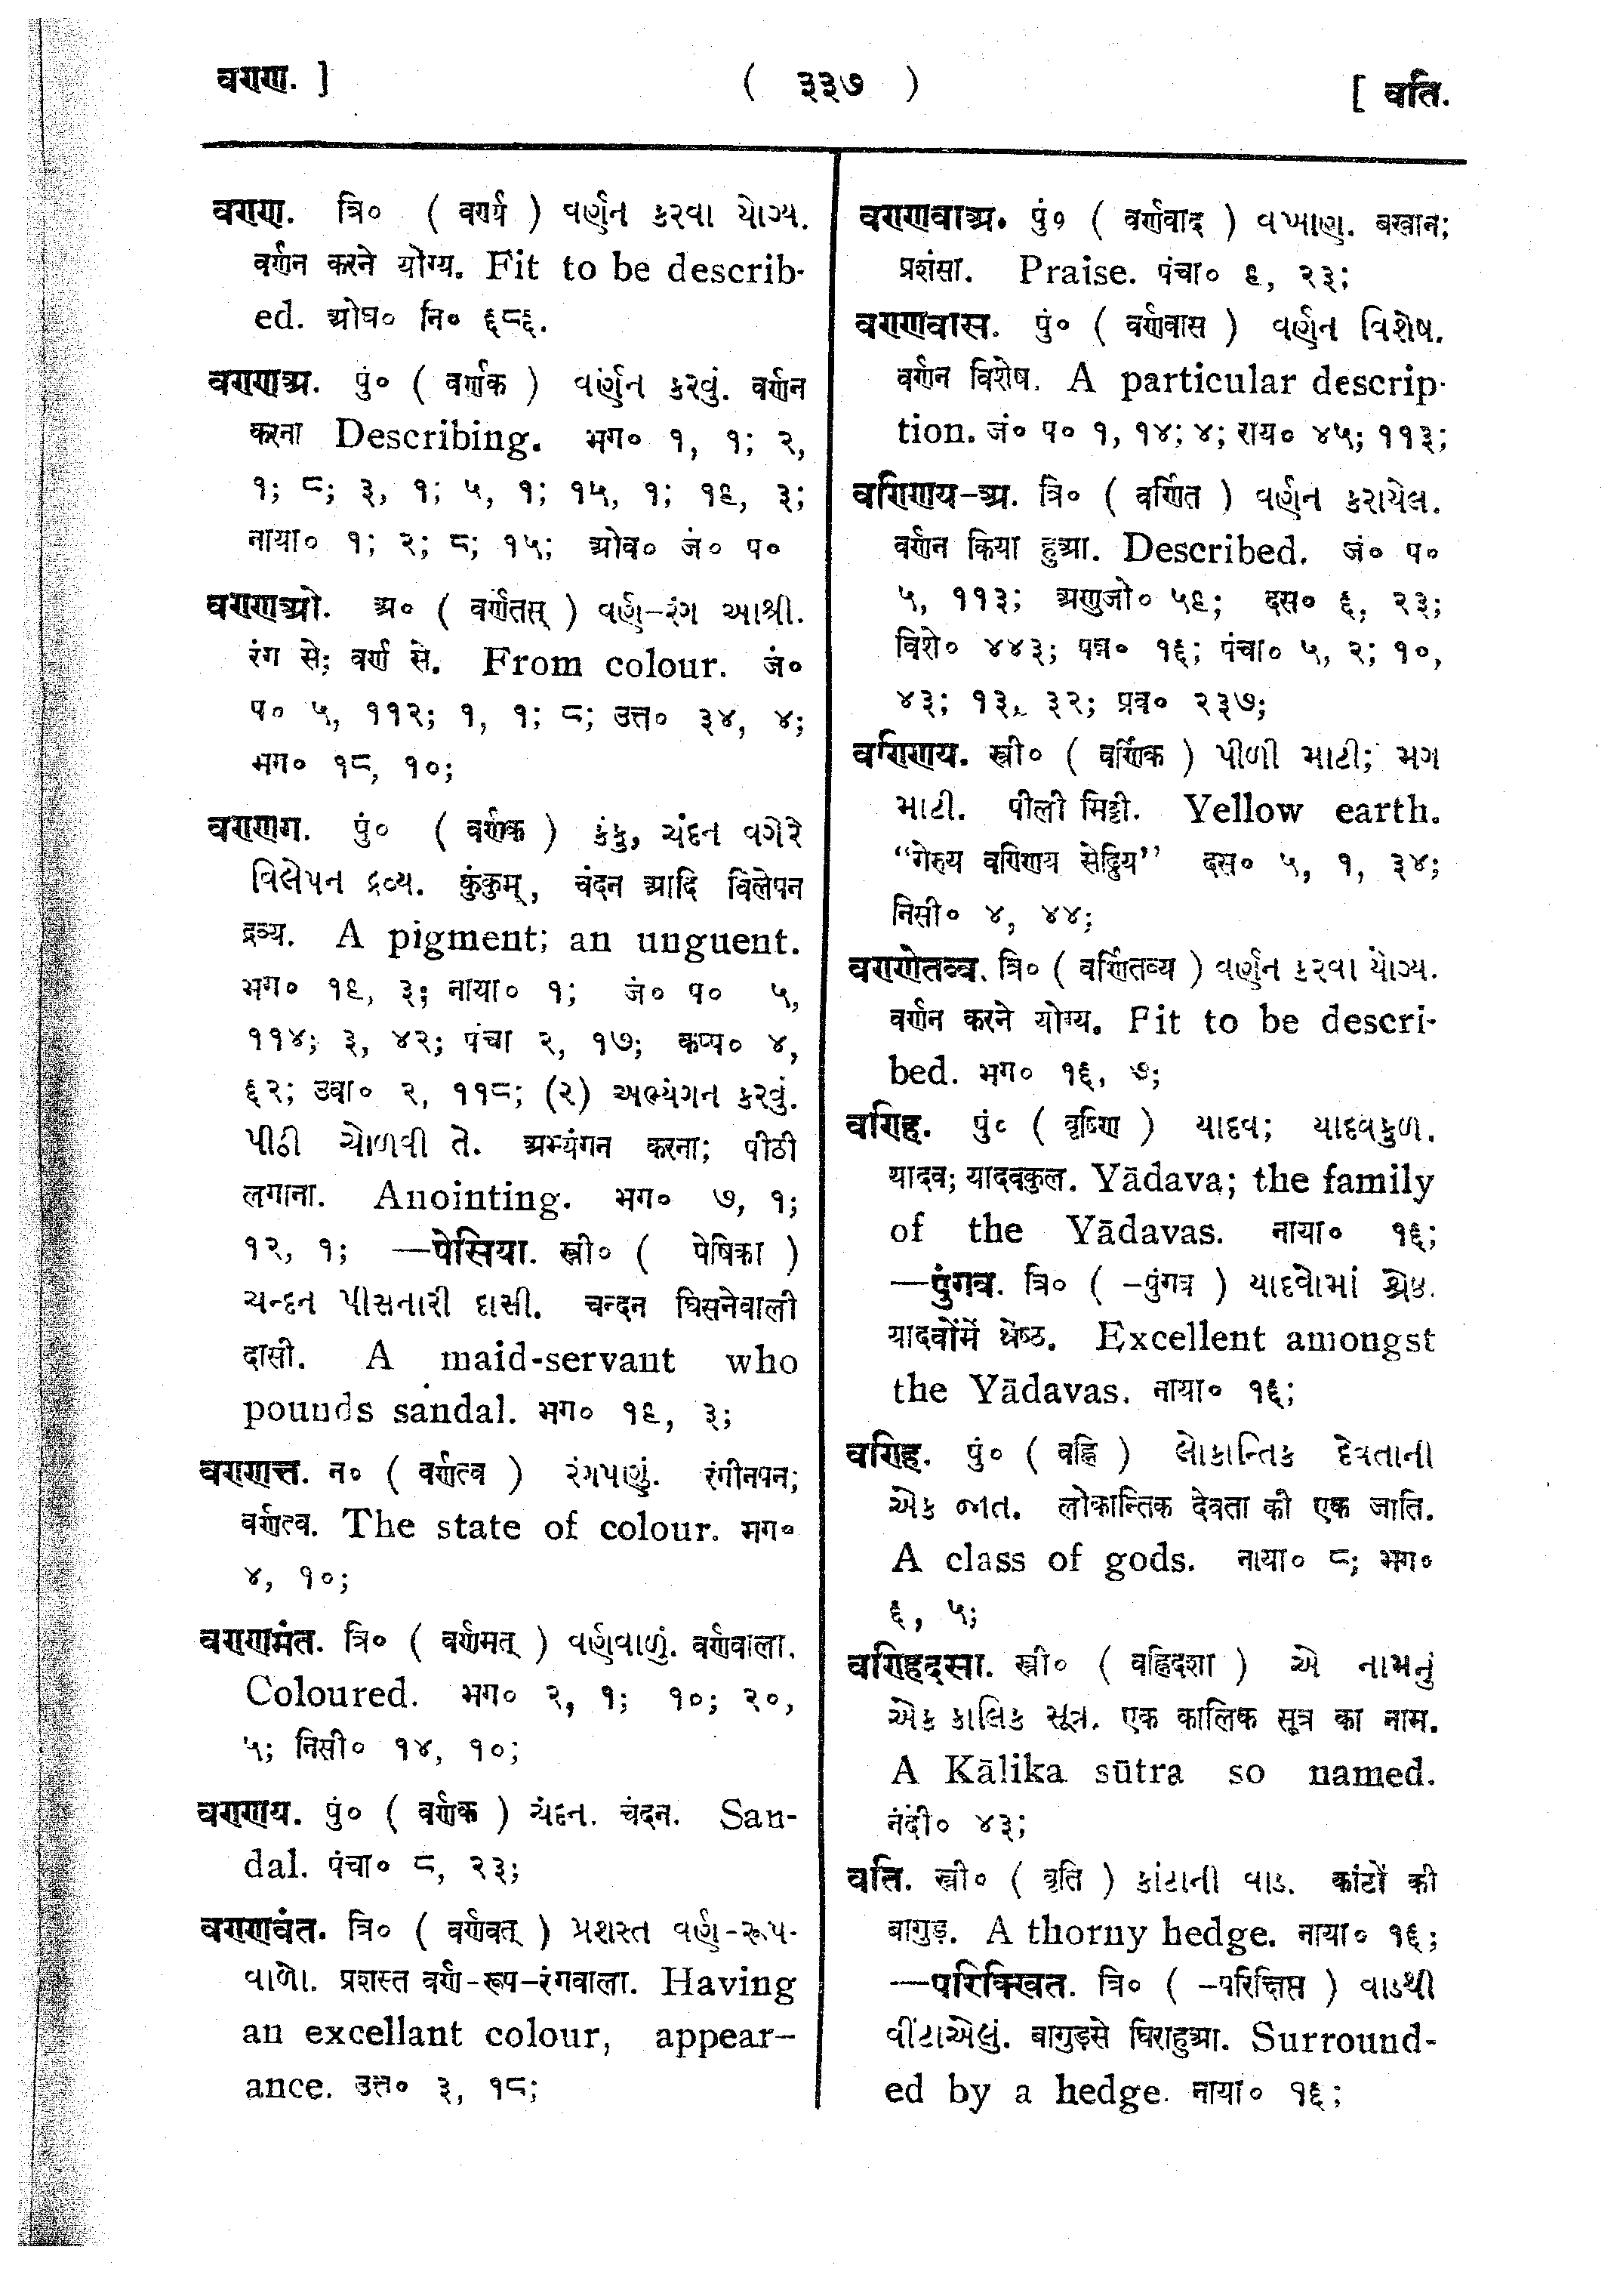 वरणण. ]
( ३३७ )
[ वति.
वरणण. त्रि० ( वर्ण्य ) વર્ણન કરવા યોગ્ય.
वर्णन करने योग्य. Fit to be describ-
ed. ओघ० नि० ६८६.
वरणणअ. पुं० ( वर्णक ) વર્ણન કરવું. वर्णन
करना Describing. भग० १, १; २,
१; ८; ३, १; ५, १; १५, १; १९, ३;
नाया० १; २; ८; १५; ओव० जं० प०
वरणणओ. अ० ( वर्णतस् ) વર્ણ-રંગ આશ્રી.
रंग से; वर्ण से. From colour. जं०
प० ५, ११२; १, १; ८; उत्त० ३४, ४;
भग० १८, १०;
वरणणग. पुं० ( वर्णक ) કંકુ, ચંદન વગેરે
વિલેપન દ્રવ્ય. कुंकुम्, चंदन आदि विलेपन
द्रव्य. A pigment; an unguent.
भग० १९, ३; नाया० १; जं० प० ५,
११४; ३, ४२; पंचा २, १७; कप्प० ४,
६२; उवा० २, ११८; (२) અભ્યંગન કરવું.
પીઠી ચોળવી તે. अभ्यंगन करना; पीठी
लगाना. Anointing. भग० ७, १;
१२, १; —पेसिया. स्त्री० ( पेषिका )
ચન્દન પીસનારી દાસી. चन्दन घिसनेवाली
दासी. A maid-servant who
pounds sandal. भग० १९, ३;
वरणणत्त. न० ( वर्णत्व ) રંગપણું. रंगीनपन;
वर्णत्व. The state of colour. भग०
४, १०;
वरणणमंत. त्रि० ( वर्णमत् ) વર્ણવાળું. वर्णवाला.
Coloured. भग० २, १; १०; २०,
५; निसी० १४, १०;
वरणणय. पुं० ( वर्णक ) ચંદન. चंदन. San-
dal. पंचा० ८, २३;
वरणणवंत. त्रि० ( वर्णवत् ) પ્રશસ્ત વર્ણ-રૂપ-
વાળો. प्रशस्त वर्ण-रूप-रंगवाला. Having
an excellant colour, appear-
ance. उत्त० ३, १८;
वरणणवाअ. पुं० ( वर्णवाद ) વખાણ. बखान;
प्रशंसा. Praise. पंचा० ९, २३;
वरणणवास. पुं० ( वर्णवास ) વર્ણન વિશેષ.
वर्णन विशेष. A particular descrip-
tion. जं० प० १, १४; ४; राय० ४५; ११३;
वरिणय-अ. त्रि० ( वर्णित ) વર્ણન કરાયેલ.
वर्णन किया हुआ. Described. जं० प०
५, ११३; अणुजो० ५९; दस० ६, २३;
विशे० ४४३; पन्न० १६; पंचा० ५, २; १०,
४३; १३, ३२; प्रव० २३७;
वरिणय. स्त्री० ( वर्णिक ) પીળી માટી; મગ
માટી. पीली मिट्टी. Yellow earth.
“गेरुय वरिणय सेट्ठिय” दस० ५, १, ३४;
निसी० ४, ४४;
वरणेतव्व. त्रि० ( वर्णितव्य ) વર્ણન કરવા યોગ્ય.
वर्णन करने योग्य. Fit to be descri-
bed. भग० १६, ७;
वरिह. पुं० ( वृष्णि ) યાદવ; યાદવકુળ.
यादव; यादवकुल. Yādava; the family
of the Yādavas. नाया० १६;
—पुंगव. त्रि० ( -पुंगव ) યાદવોમાં શ્રેષ્ઠ.
यादवोंमें श्रेष्ठ. Excellent amongst
the Yādavas. नाया० १६;
वरिह. पुं० ( वह्नि ) લોકાન્તિક દેવતાની
એક જાત. लोकान्तिक देवता की एक जाति.
A class of gods. नाया० ८; भग०
६, ५;
वरिहदसा. स्त्री० ( वह्निदशा ) એ નામનું
એક કાલિક સૂત્ર. एक कालिक सूत्र का नाम.
A Kālika sūtra so named.
नंदी० ४३;
वति. स्त्री० ( वृति ) કાંટાની વાડ. कांटों की
बागुड़. A thorny hedge. नाया० १६;
—परिक्खित. त्रि० ( -परिक्षिप्त ) વાડથી
વીંટાએલું. बागुड़से घिराहुआ. Surround-
ed by a hedge. नाया० १६;